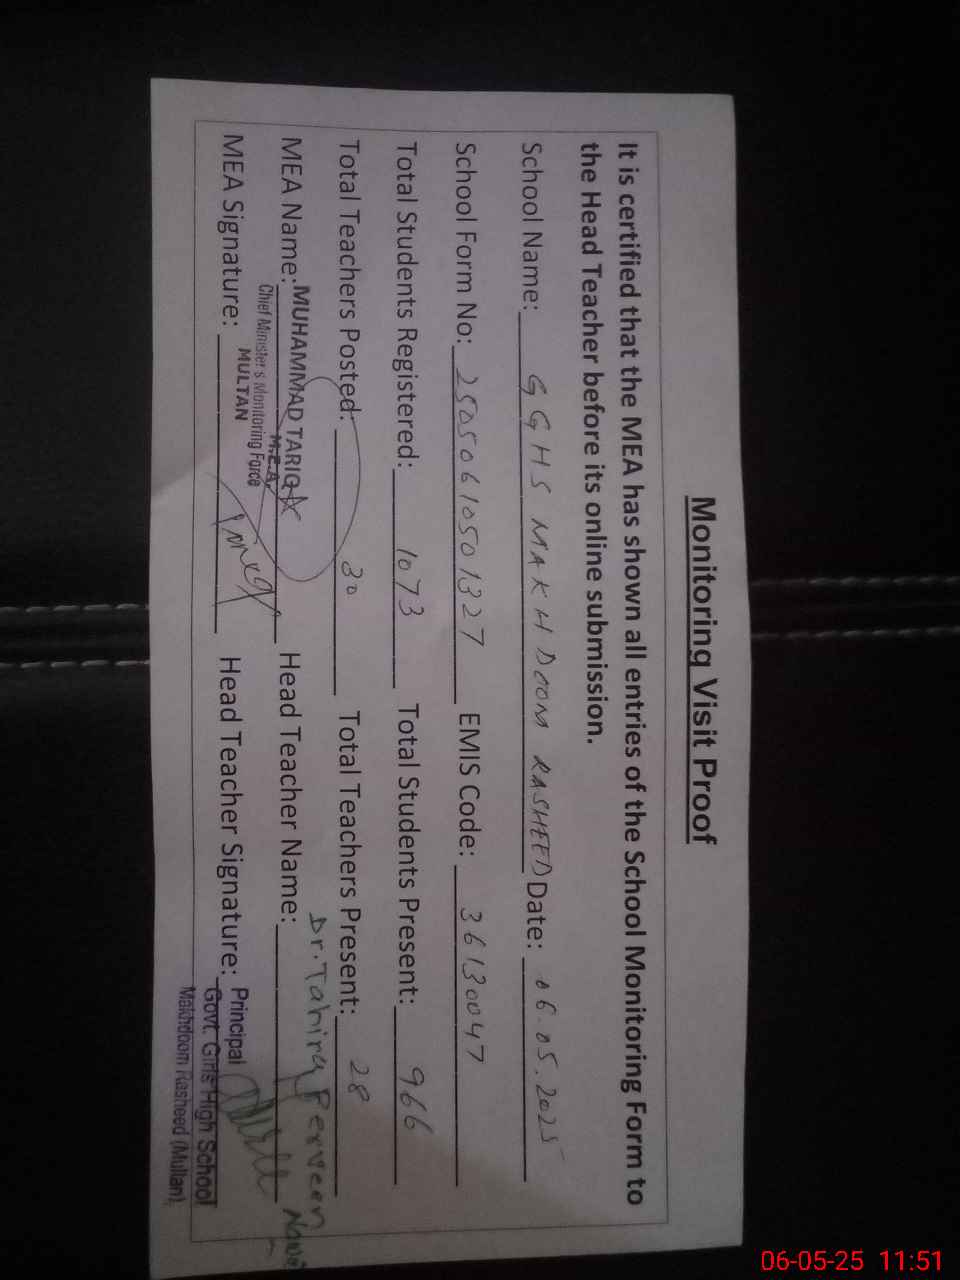 Monitoring Visit Proof
It is certified that the MEA has shown all entries of the School Monitoring Form to
the Head Teacher before its online submission.
School Name: GGHS MAKHDOOM RASHEED Date: 06.05.2025
School Form No: 25050610501327 EMIS Code: 36130047
Total Students Registered: 1073 Total Students Present: 966
Total Teachers Posted: 30 Total Teachers Present: 28
MEA Name: MUHAMMAD TARIQ Head Teacher Name: Dr. Tahira Perveen
M.E.A.
Chief Minister's Monitoring Force
MULTAN
MEA Signature: Head Teacher Signature: Principal
Govt. Girls High School
Makhdoom Rasheed (Multan)
06-05-25 11:51